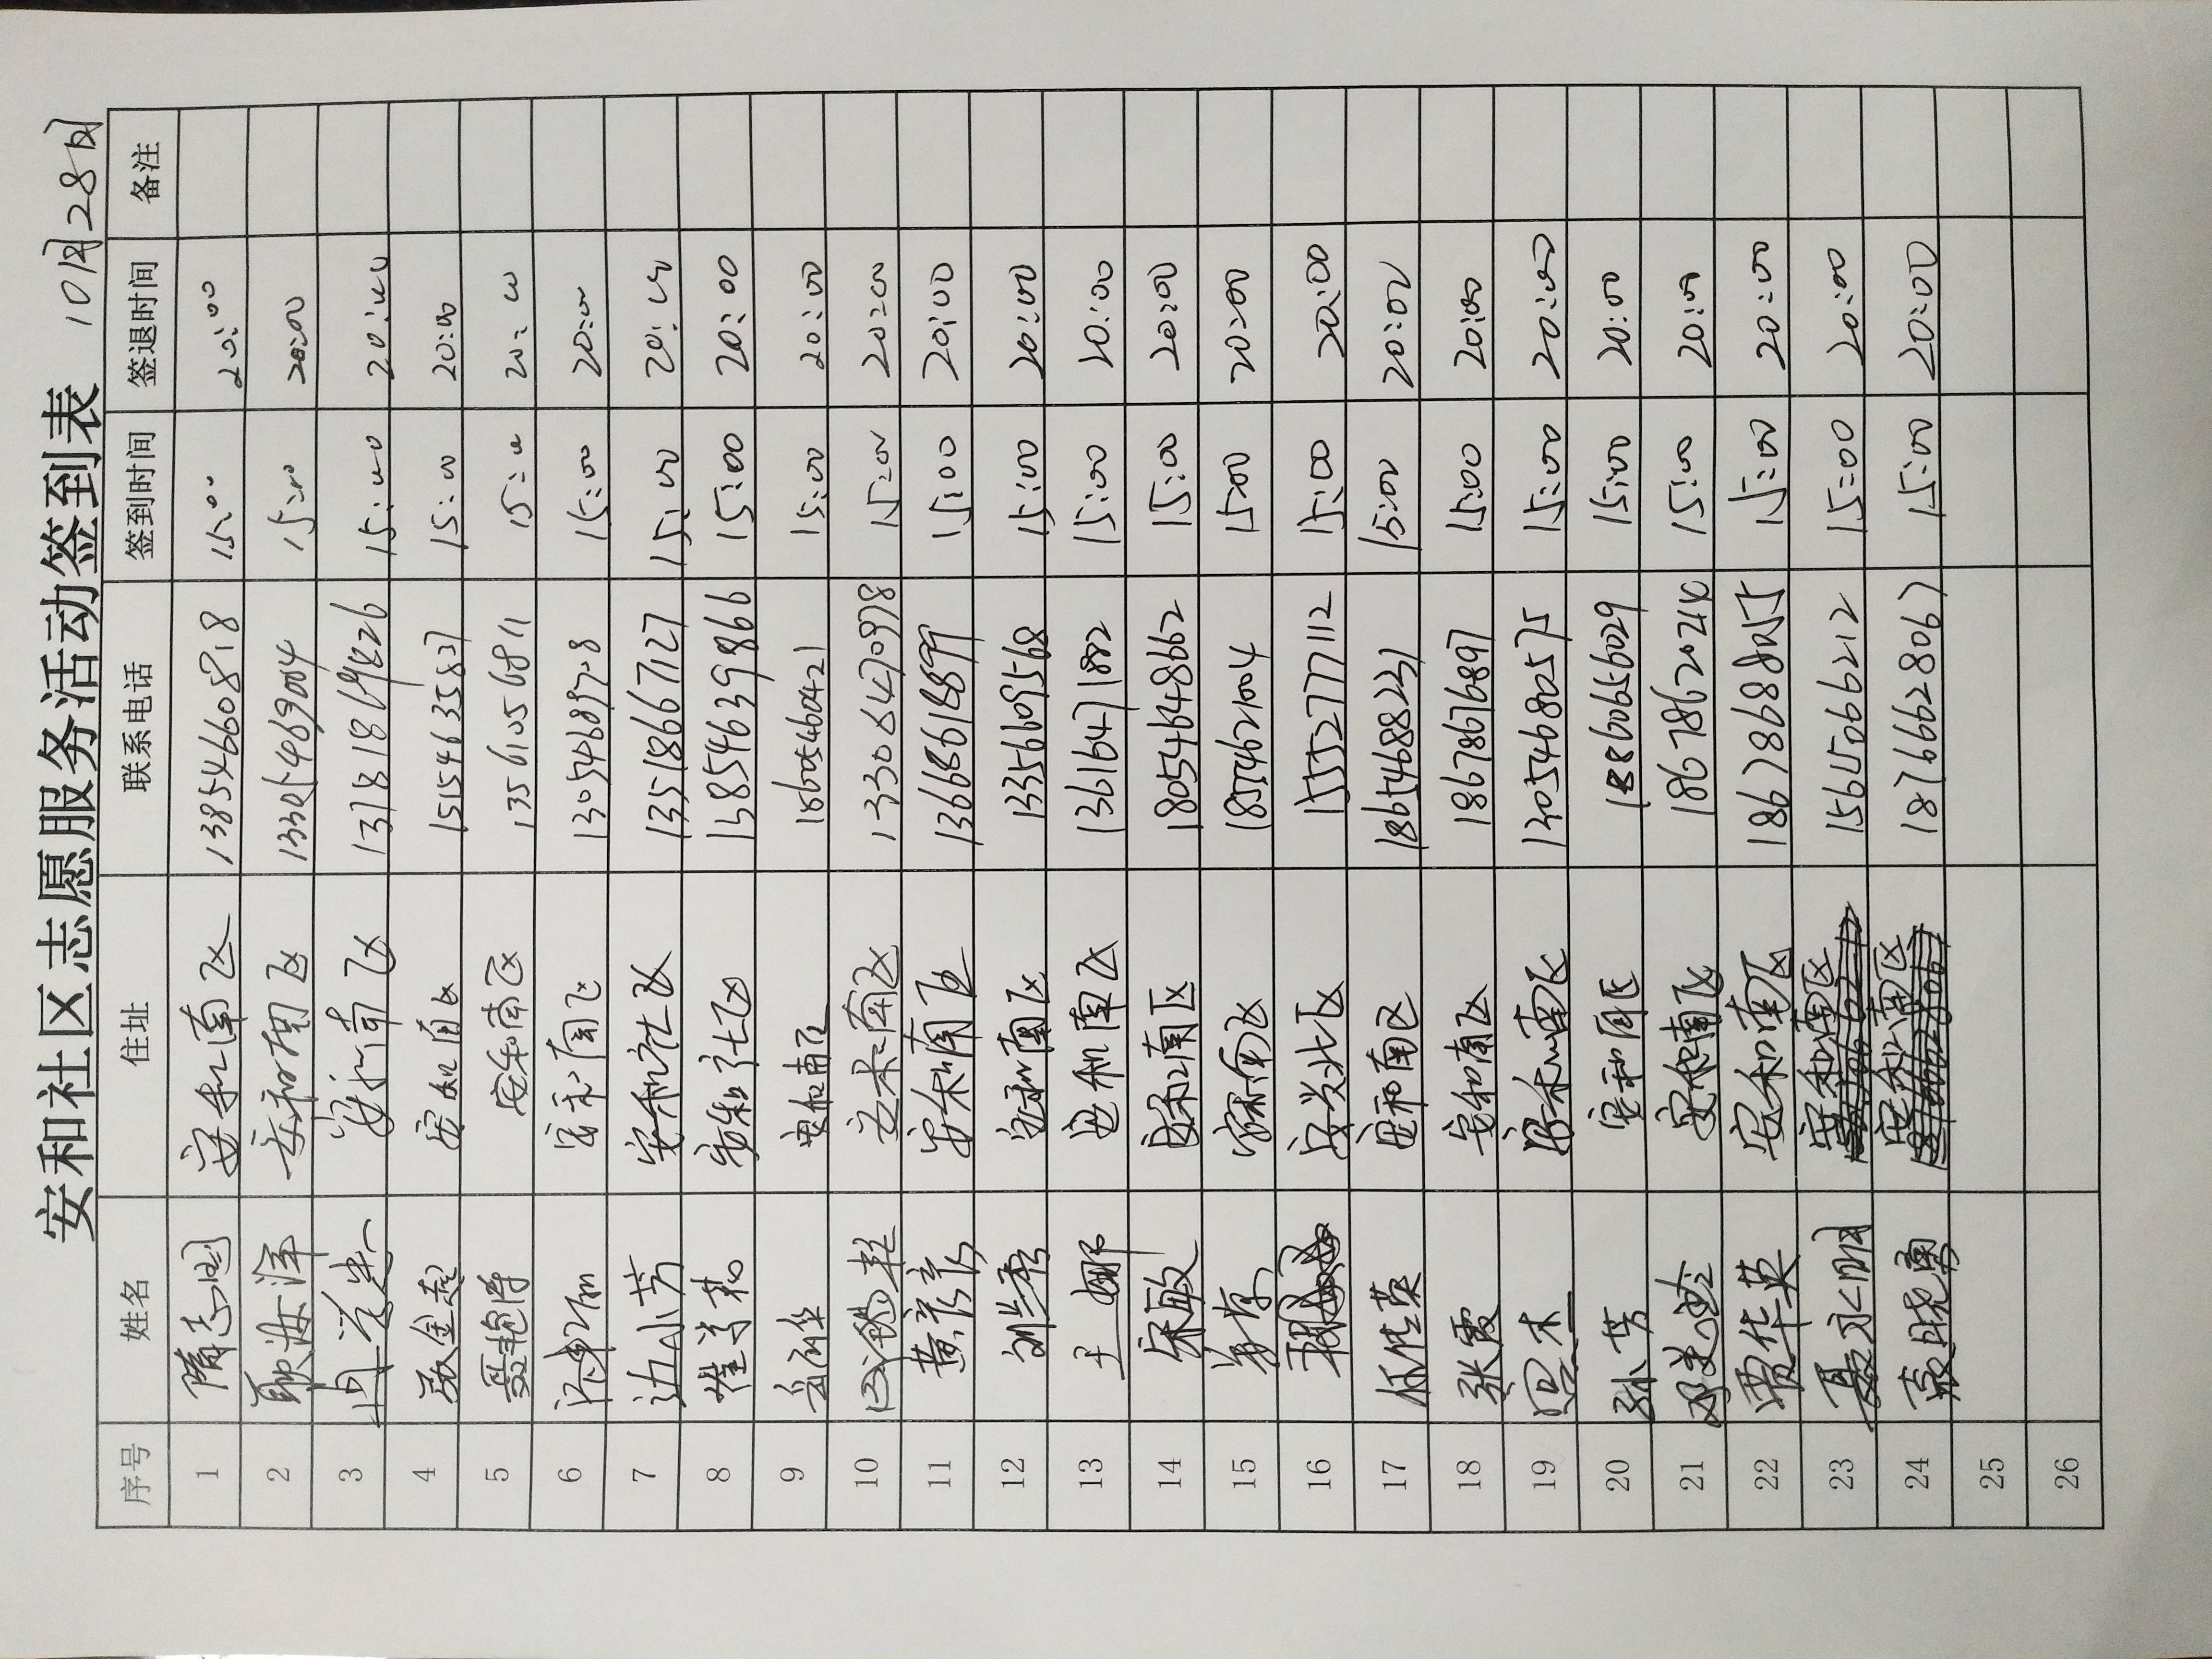 安和社区志愿服务活动签到表 10月28日
序号 姓名 住址 联系电话 签到时间 签退时间 备注
1 隋志国 安和南区 13854660818 15:00 20:00
2 耿海洋 安和南区 15:00 20:00
3 安和南区 15:00 20:00
4 安和南区 15154635837 15:00 20:00
5 聂艳涛 安和南区 13561056811 15:00 20:00
6 安和南区 13054689728 15:00 20:00
7 边小芳 安和社区 13518667127 15:00 20:00
8 崔学君 安和社区 15854639866 15:00 20:00
9 安和南区 18605460421 15:00 20:00
10 安和南区 13306470978 15:00 20:00
11 安和南区 13668618899 15:00 20:00
12 刘兰秀 安和南区 13356609568 15:00 20:00
13 王娜 安和南区 13616471882 15:00 20:00
14 宋敏 安和南区 18054648662 15:00 20:00
15 安和南区 18554621004 15:00 20:00
16 安兴北区 15552777112 15:00 20:00
17 任桂英 安和南区 18654688231 15:00 20:00
18 张霞 安和南区 18678676897 15:00 20:00
19 安和南区 13054680257 15:00 20:00
20 孙芳 安和南区 15:00 20:00
21 安和南区 15:00 20:00
22 贾华英 安和南区 18678688055 15:00 20:00
23 聂永明 安和南区 15615066212 15:00 20:00
24 袁晓勇 安和南区 18766628067 15:00 20:00
25
26